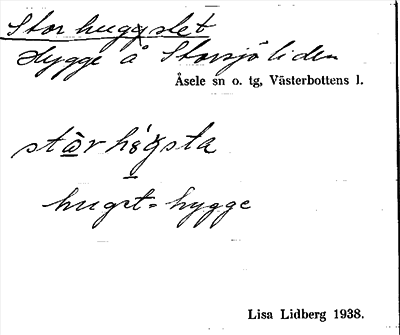 Storhuggslet
Hygge å Storsjöliden
Åsele sn o. tg, Västerbottens l.
stòr hóggsta
hugst = hygge
Lisa Lidberg 1938.